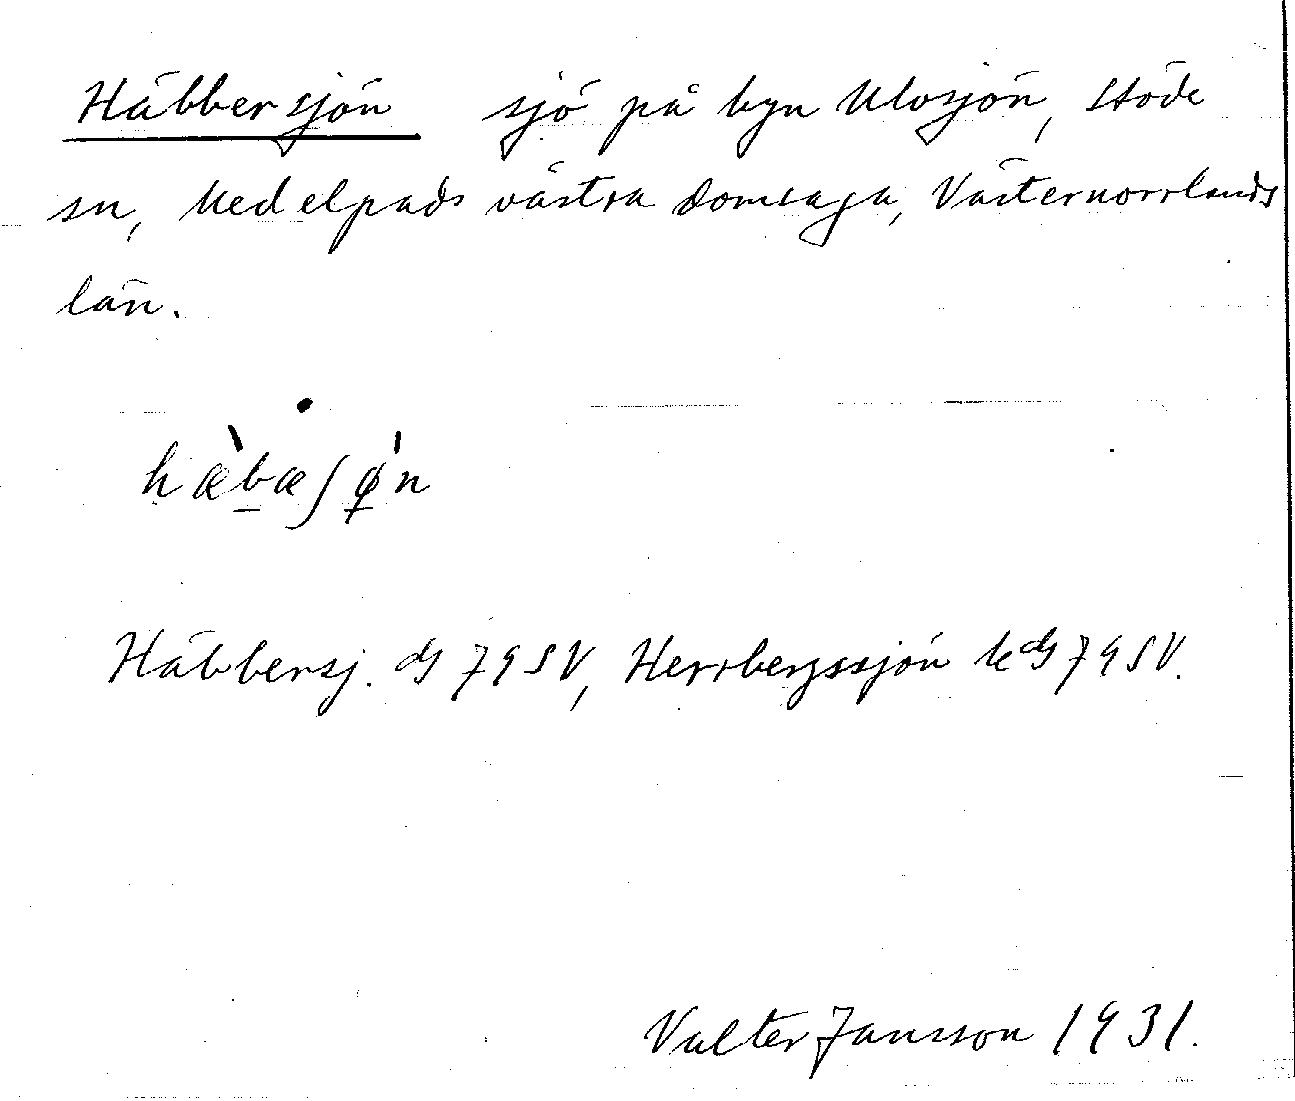 Häbbersjön sjö på byn Ulvsjön, Stöde
sn, Medelpads västra domsaga, Västernorrlands
län.
hæ̀bæʃø̀n
Häbbersj. dS 79 SV, Herrbergssjön kdS 79 SV.
Valter Jansson 1931.